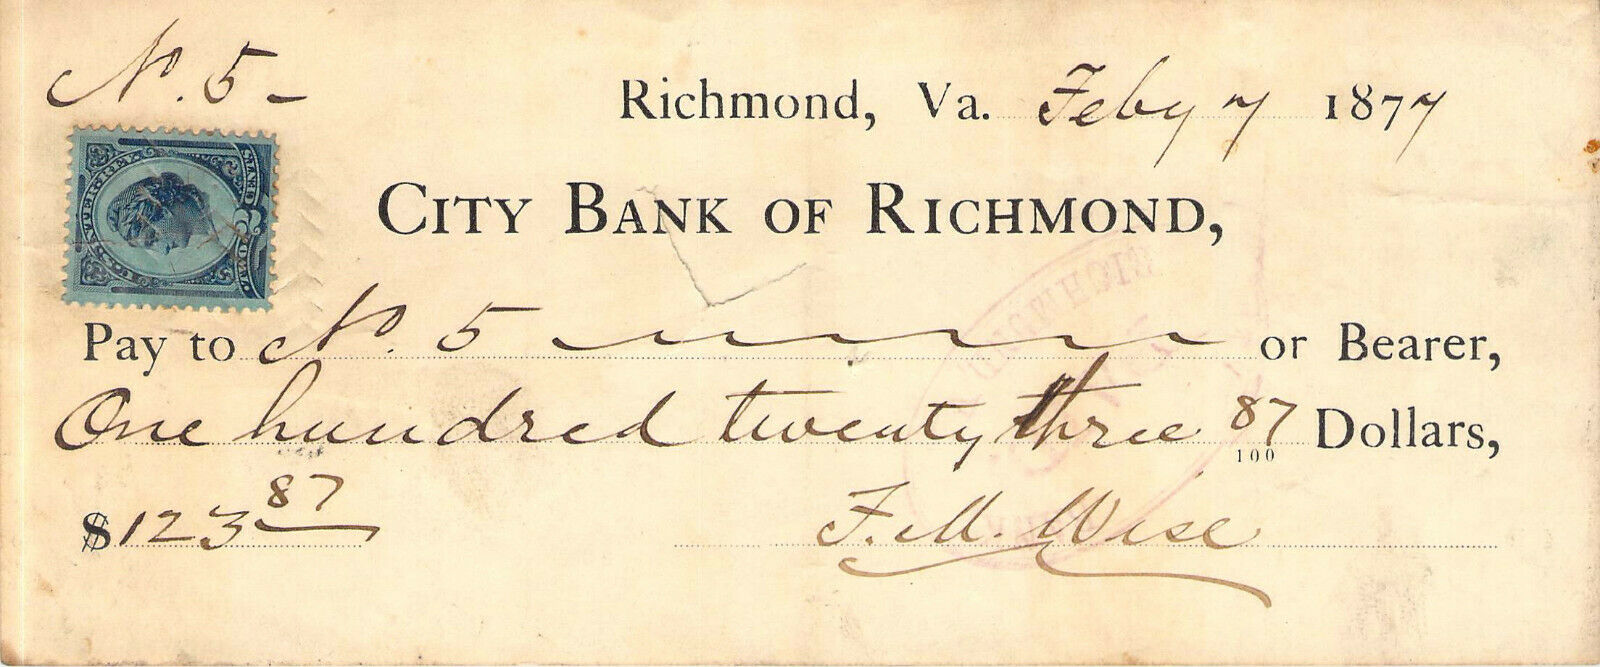 No. 5-
Richmond, Va. Feby 7 1877
CITY BANK OF RICHMOND,
Pay to No. 5 or Bearer,
One hundred twenty three 87/100 Dollars,
$123 87
F. M. Wise